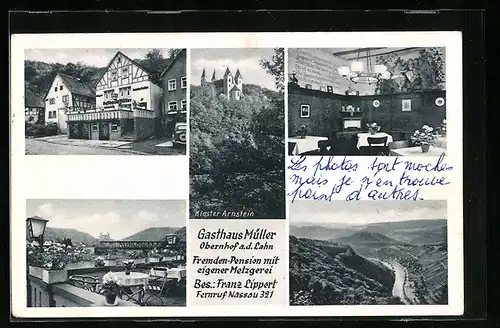 Kloster Arnstein
Les photos sont moches
mais je n'en trouve
point d'autres.
Gasthaus Müller
Obernhof a.d. Lahn
Fremden-Pension mit
eigener Metzgerei
Bes.: Franz Lippert
Fernruf Nassau 391